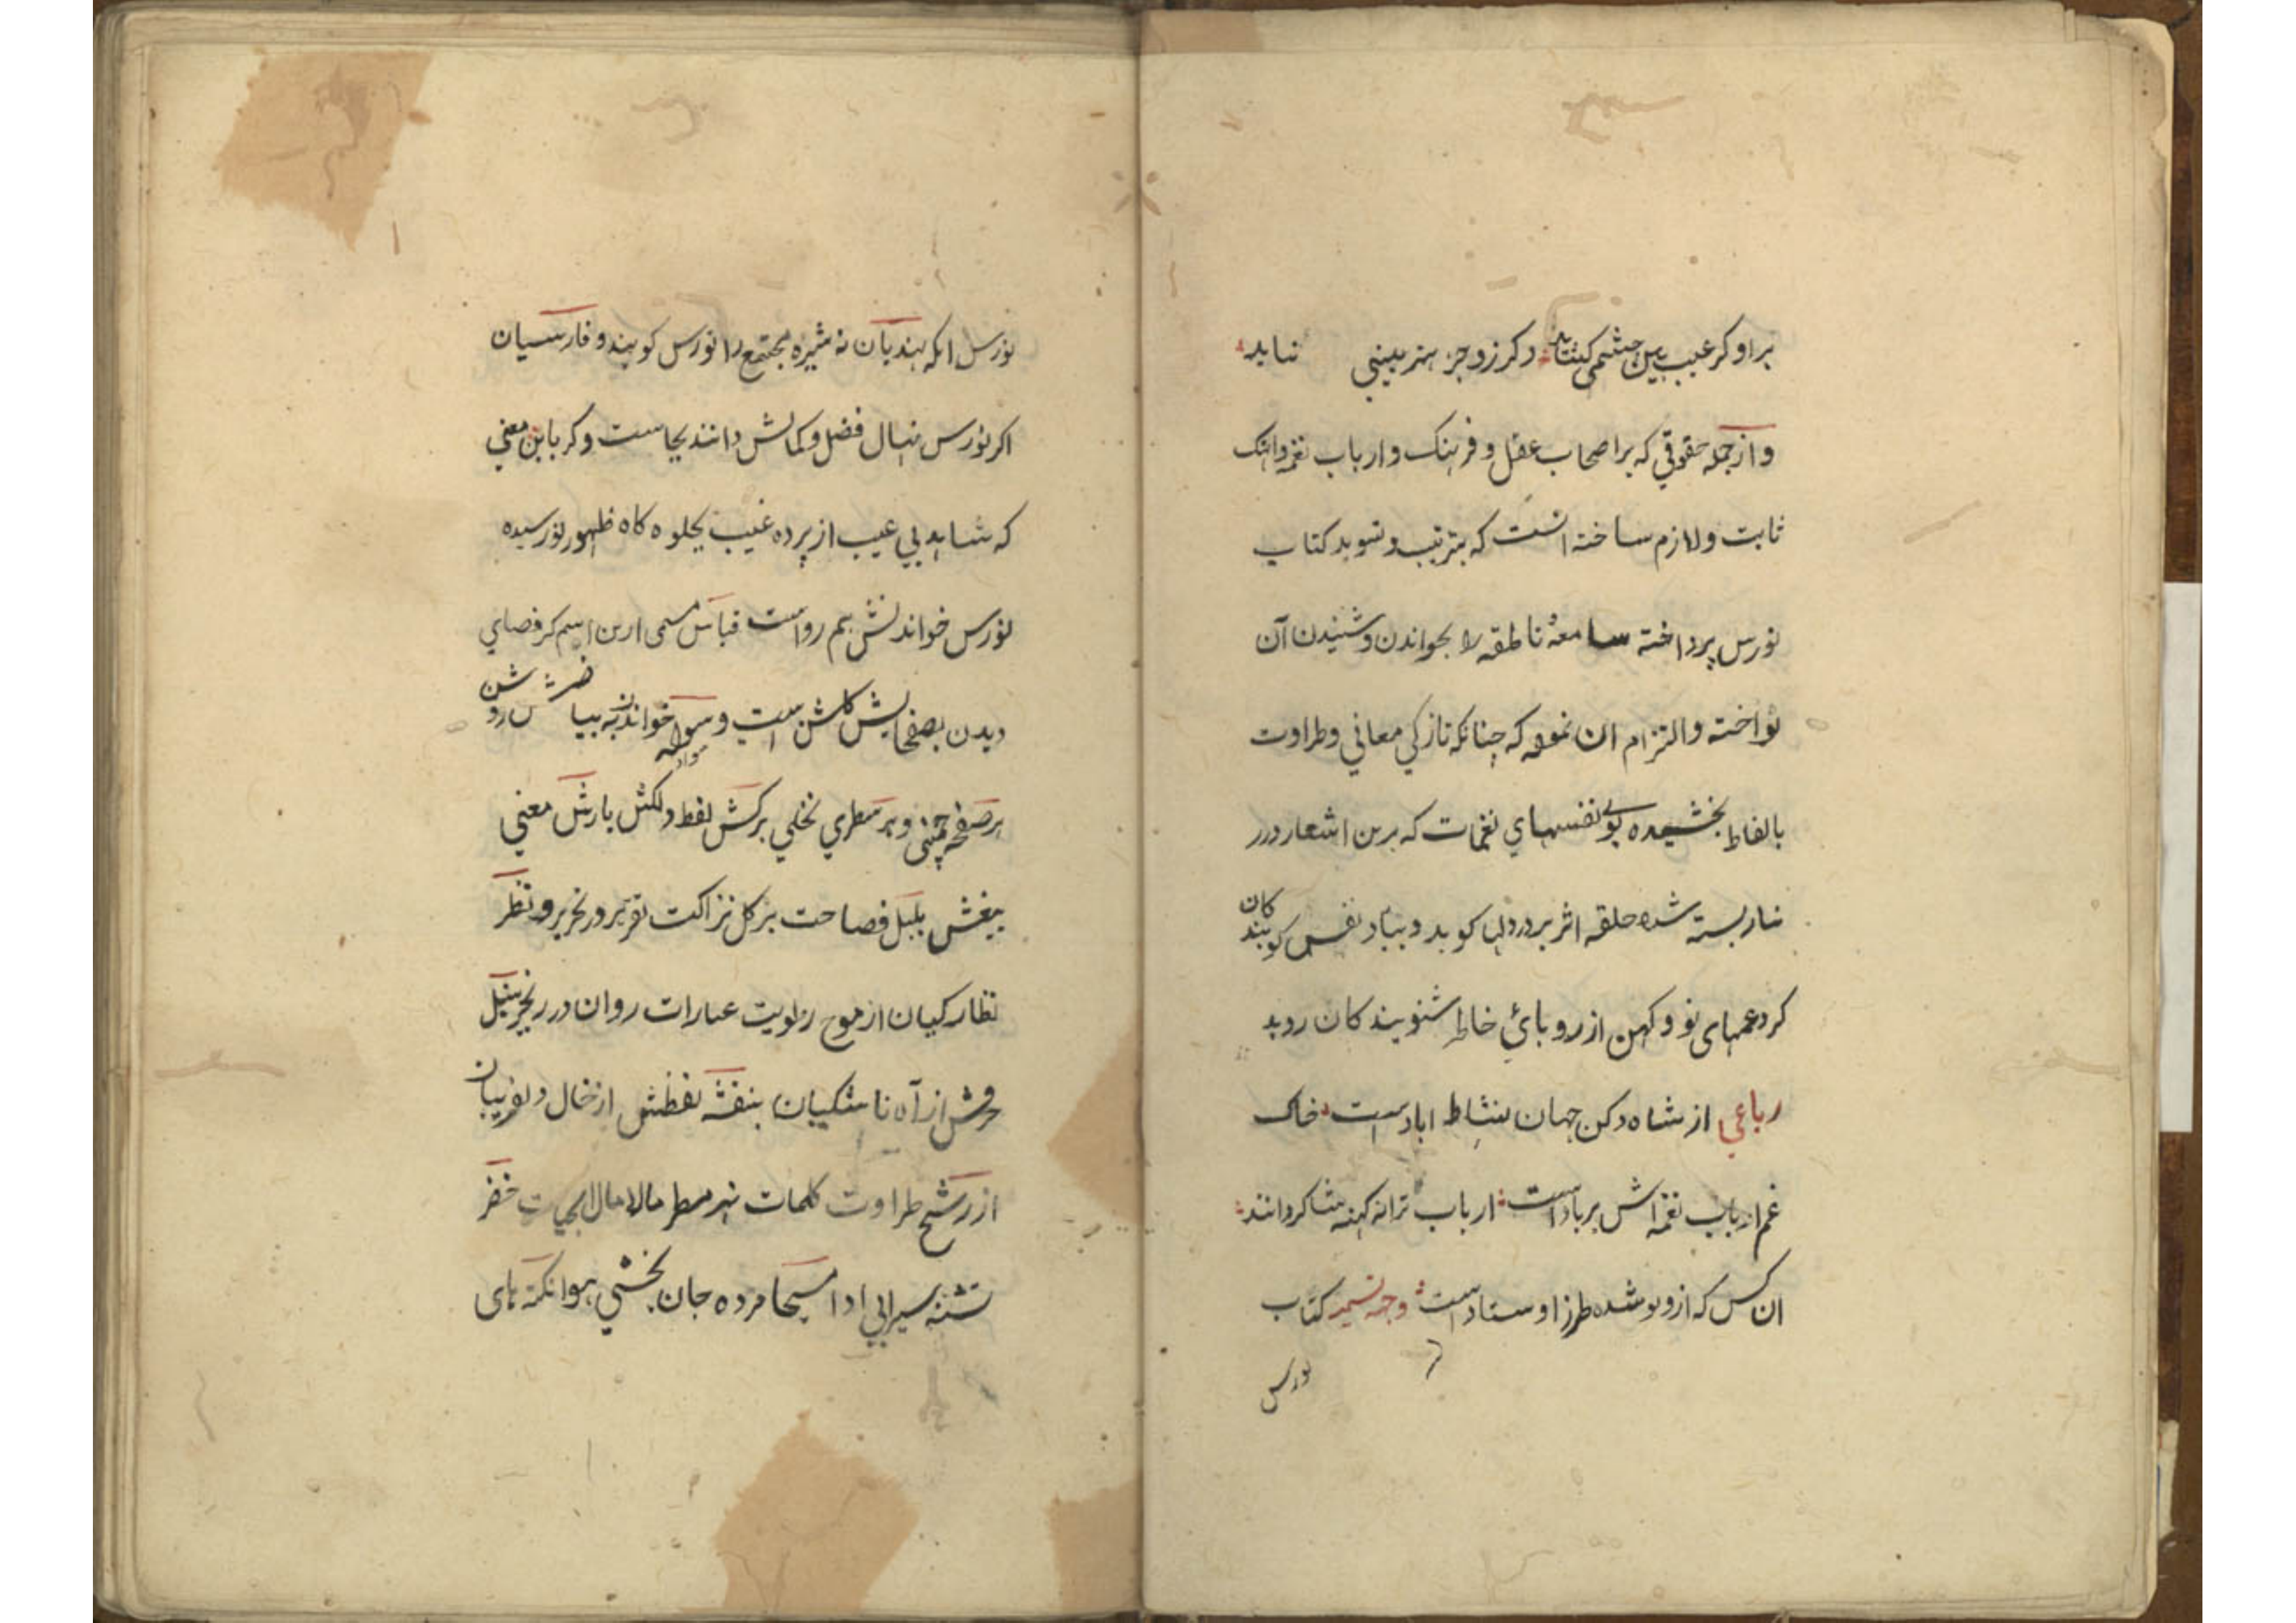 براو کر عیب بین چشمی کشاید دکر زو جز هنر بینی نیاید
و از جمله حقوقی که بر اصحاب عقل و فرهنک و ارباب نغمه و اهنک
ثابت و لازم ساخته انست که بترتیب و تسوید کتاب
نورس پرداخته سامعه ناطقه را بخواندن و شنیدن آن
نواخته و التزام ان نموده که چنانکه تازکی معانی و طراوت
بالفاظ بخشیده نفسهای نغمات که برین اشعار درر
نثار بسته شده حلقه اثر بر در دلها کوبد و بباد نفس کویندکان
کرد غمهای نو و کهن از خاطر شنویندکان روبد
رباعی از شاه دکن جهان نشاط اباد است خاک
غم ارباب نغمه اش برباد است ارباب ترانه کهنه شاکردانند
ان کس که ازو نو شده طرز اوستاد است وجه تسمیه کتاب
نورس
نورس انکه هندیان نه شیره مجتمع را نورس کویند و فارسیان
اکر نورس نهال فضل و کمالش دانند بجاست و کر باین معنی
که شاهد بی عیب از پرده غیب بجلوه کاه ظهور نو رسیده
نورس خوانندش هم رواست قیاس مسمی ازین اسم کر فضای
دیدن بصفحایش کلشن است و سواد خواندن به بیا
هر صفحه چمنی و هر سطری نخلی برکش لفظ دلکش بارش معنی
بیغش بلبل فصاحت بر کل نزاکت تقریر در تحریر و نظر
نظارکیان از موج رطوبت عبارات روان در زنجیر سنبل
حروفش از آه ناشکیبان بنفشه نقطش از خال دلفریبان
از رشح طراوت کلمات نهر سطر مالامال ابحیات خضر
تشنه سیرابی ادا مسیحا مرده جان بخشی هوا نکته های